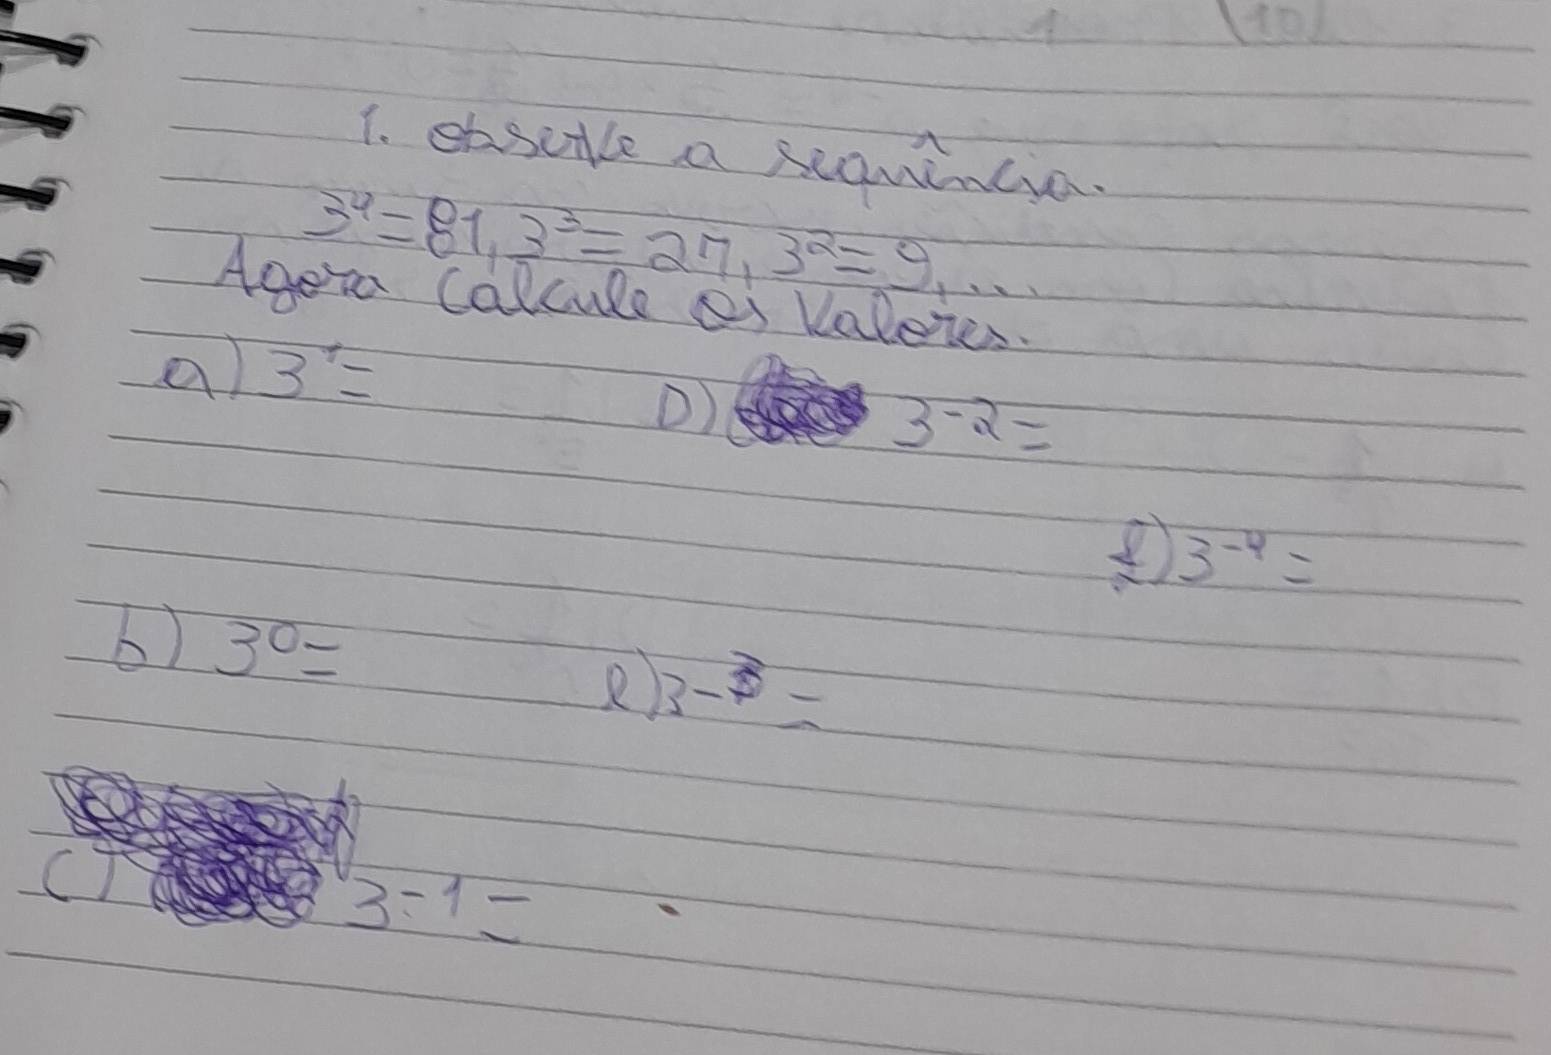 1. observe a sequência.
3⁴ = 81, 3³ = 27, 3² = 9, ....
Agora Calcule os Valores.
a) 3¹ =
D) 3-2 =
f) 3⁻⁴ =
b) 3⁰ =
e) 3-3 =
c) 3-1 =